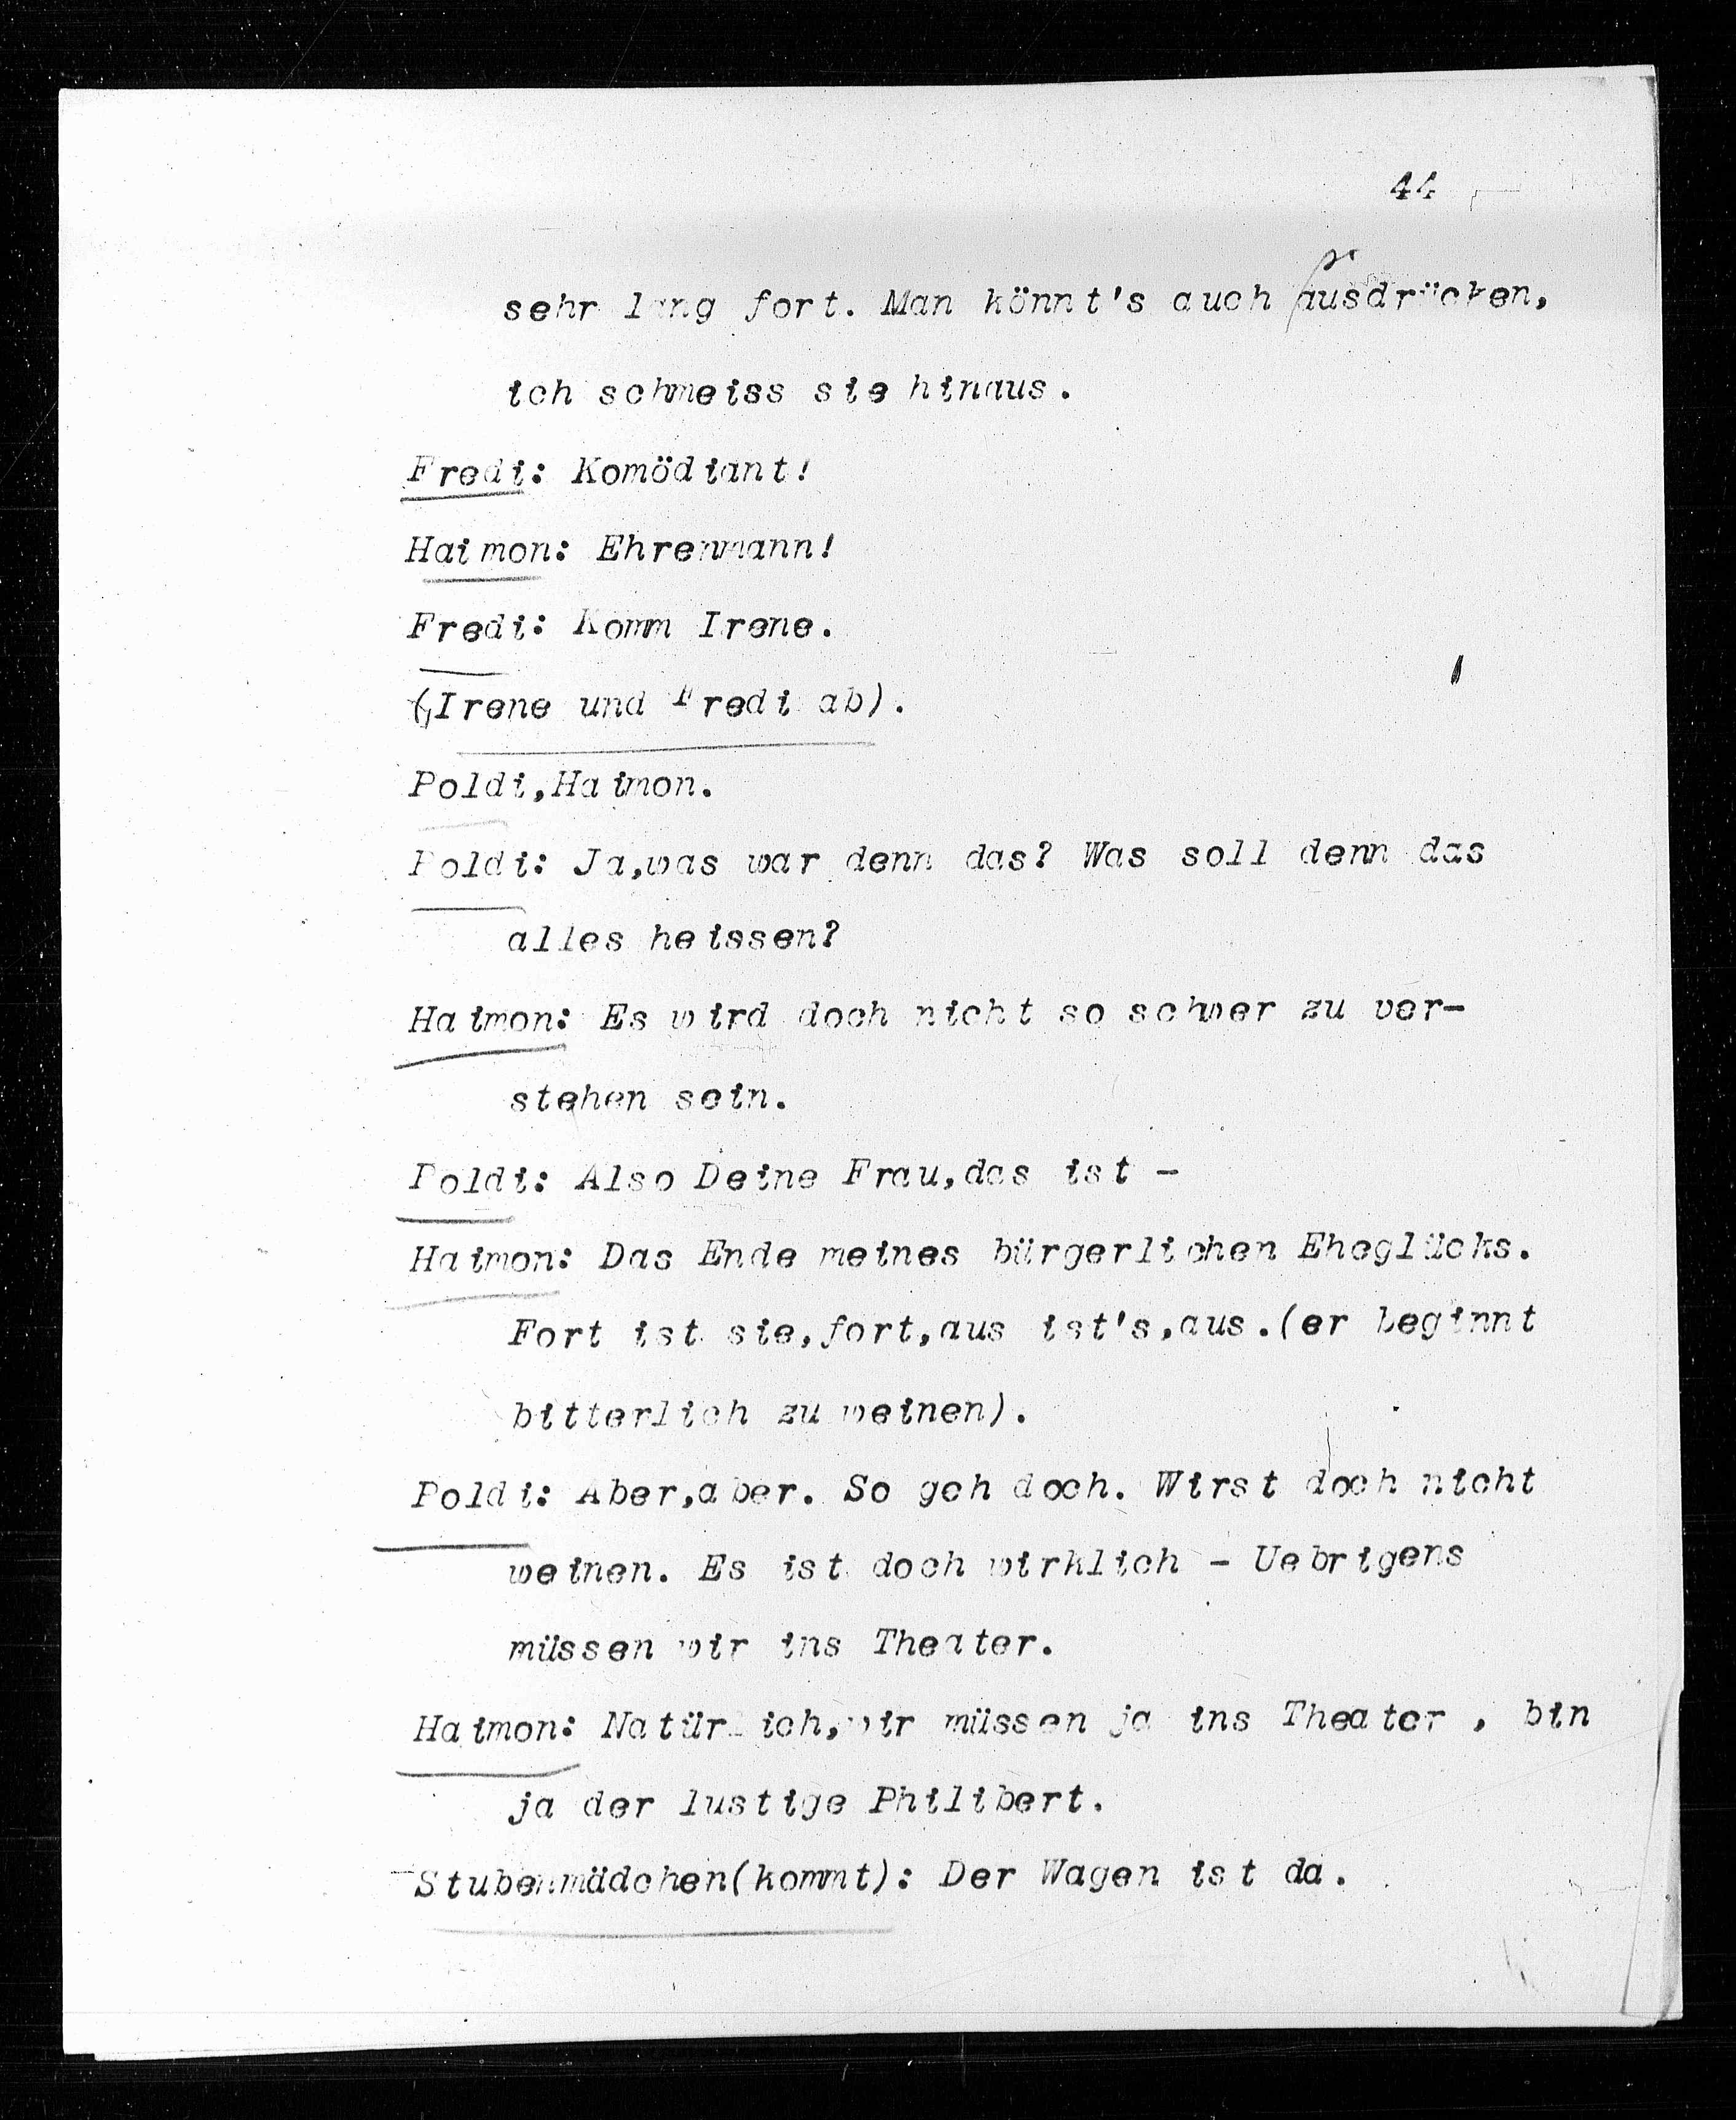 44
sehr lang fort. Man könnt's auch ausdrücken,
ich schmeiss sie hinaus.
Fredi: Komödiant!
Haimon: Ehrenmann!
Fredi: Komm Irene.
(Irene und Fredi ab).
Poldi,Haimon.
Poldi: Ja,was war denn das? Was soll denn das
alles heissen?
Haimon: Es wird doch nicht so schwer zu ver-
stehen sein.
Poldi: Also Deine Frau,das ist -
Haimon: Das Ende meines bürgerlichen Eheglücks.
Fort ist sie,fort,aus ist's,aus.(er beginnt
bitterlich zu weinen).
Poldi: Aber,aber. So geh doch. Wirst doch nicht
weinen. Es ist doch wirklich - Uebrigens
müssen wir ins Theater.
Haimon: Natürlich,wir müssen ja ins Theater , bin
ja der lustige Philibert.
Stubenmädchen(kommt): Der Wagen ist da.